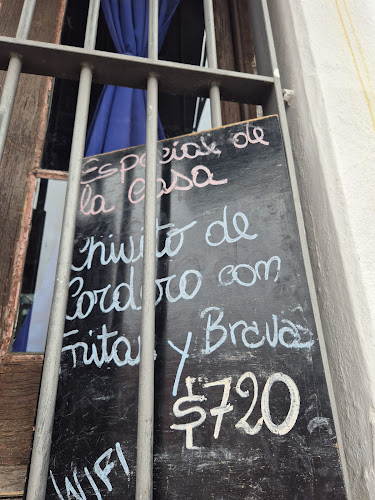 Especial de
la casa
Chivito de
Cordero com
Fritas y Brava
$720
WIFI